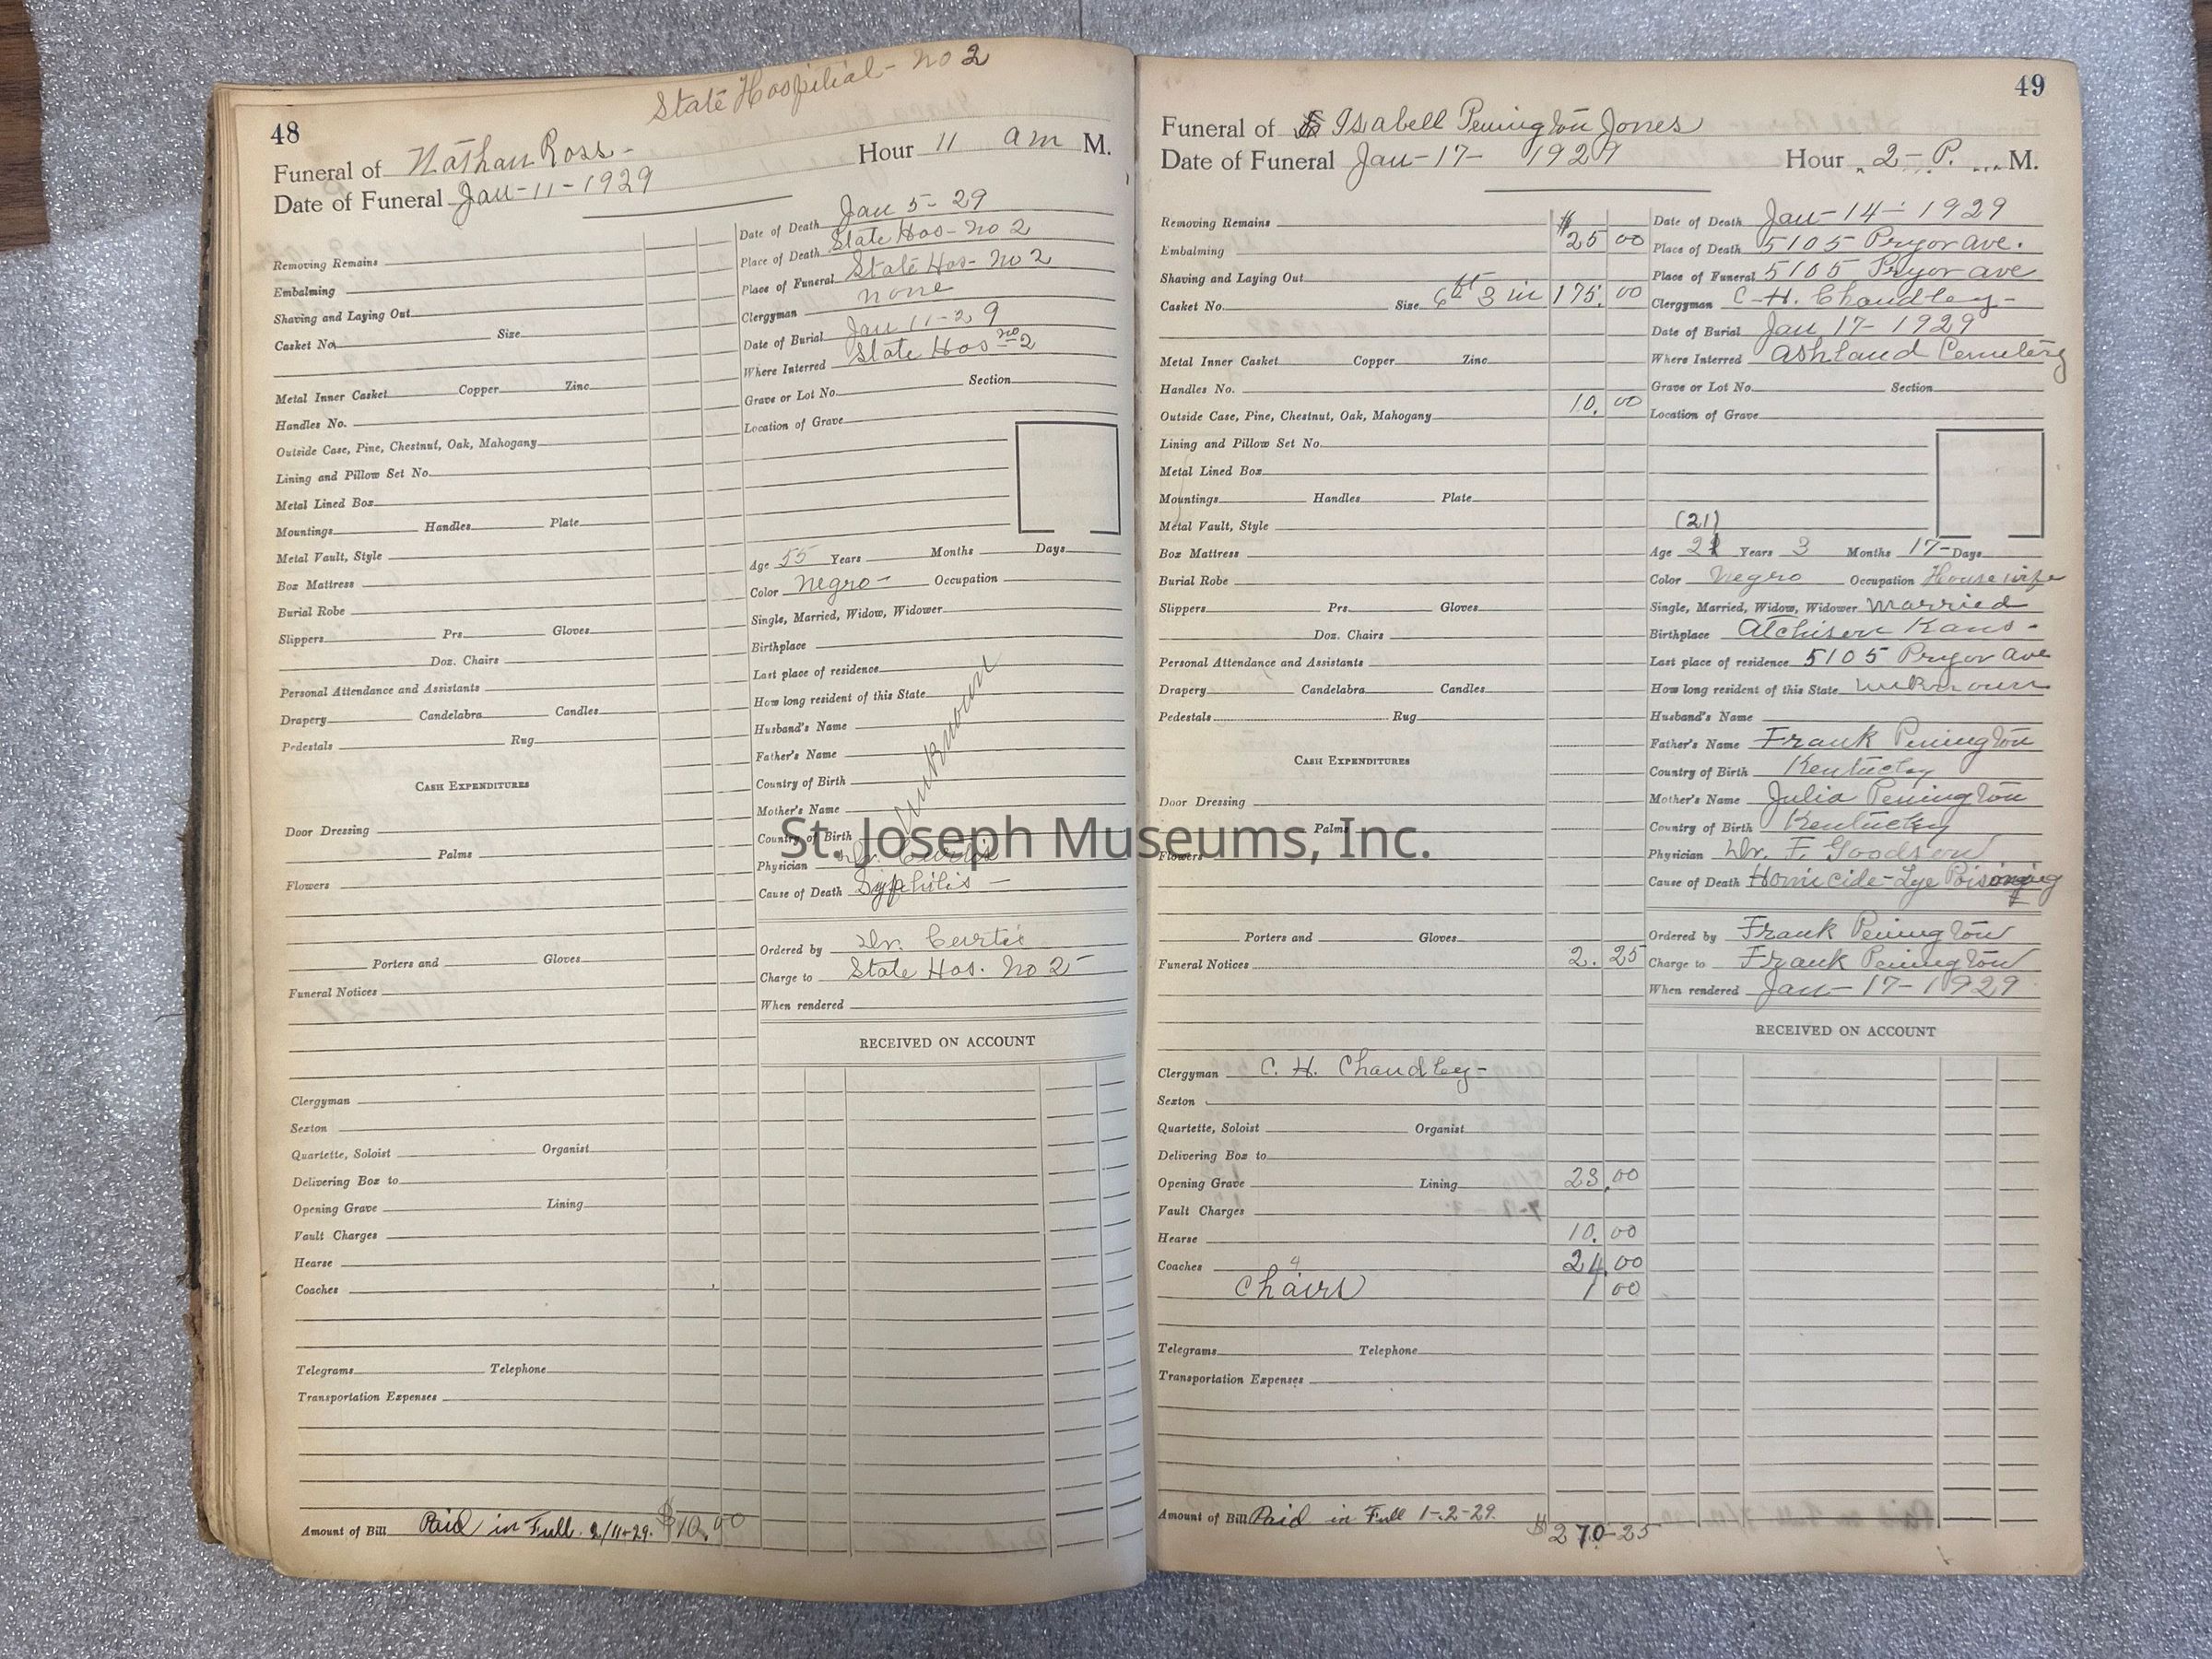 State Hospilial - No 2
48
Funeral of Nathan Ross -
Hour 11 am M.
Date of Funeral Jan-11-1929
Removing Remains
Embalming
Shaving and Laying Out
Casket No. Size
Metal Inner Casket Copper Zinc
Handles No.
Outside Case, Pine, Chestnut, Oak, Mahogany
Lining and Pillow Set No.
Metal Lined Box
Mountings Handles Plate
Metal Vault, Style
Box Mattress
Burial Robe
Slippers Prs Gloves
Doz. Chairs
Personal Attendance and Assistants
Drapery Candelabra Candles
Pedestals Rug
CASH EXPENDITURES
Door Dressing
Palms
Flowers
Porters and Gloves
Funeral Notices
Clergyman
Sexton
Quartette, Soloist Organist
Delivering Box to
Opening Grave Lining
Vault Charges
Hearse
Coaches
Telegrams Telephone
Transportation Expenses
Amount of Bill Paid in Full. 2/11-29. $10.00
Date of Death Jan 5-29
Place of Death State Hos- No 2
Place of Funeral State Hos- No 2
Clergyman none
Date of Burial Jan 11-29
Where Interred State Hos no 2
Grave or Lot No. Section
Location of Grave
Age 55 Years Months Days
Color Negro - Occupation
Single, Married, Widow, Widower
Birthplace
Last place of residence
How long resident of this State
Husband's Name
Father's Name
Country of Birth
Mother's Name
Country of Birth
unknown
Physician Dr. Curtis
Cause of Death Syphilis -
Ordered by Dr. Curtis
Charge to State Hos. No 2-
When rendered
RECEIVED ON ACCOUNT
49
Funeral of Isabell Penington Jones
Date of Funeral Jan-17- 1929 Hour 2-P. M.
Removing Remains $
Embalming 25 00
Shaving and Laying Out
Casket No. Size 6 ft 3 in 175. 00
Metal Inner Casket Copper Zinc
Handles No.
Outside Case, Pine, Chestnut, Oak, Mahogany 10. 00
Lining and Pillow Set No.
Metal Lined Box
Mountings Handles Plate
Metal Vault, Style
Box Mattress
Burial Robe
Slippers Prs. Gloves
Doz. Chairs
Personal Attendance and Assistants
Drapery Candelabra Candles
Pedestals Rug
CASH EXPENDITURES
Door Dressing
Palms
Flowers
Porters and Gloves
Funeral Notices 2. 25
Clergyman C. H. Chandley-
Sexton
Quartette, Soloist Organist
Delivering Box to
Opening Grave Lining 23.00
Vault Charges
Hearse 10. 00
Coaches 4 24.00
Chairs 1 00
Telegrams Telephone
Transportation Expenses
Amount of Bill Paid in Full 1-.2-29. $270-25
Date of Death Jan-14-1929
Place of Death 5105 Pryor ave.
Place of Funeral 5105 Pryor ave
Clergyman C-H. Chandley-
Date of Burial Jan 17-1929
Where Interred Ashland Cemetery
Grave or Lot No. Section
Location of Grave
(21)
Age 21 Years 3 Months 17- Days
Color Negro Occupation House wife
Single, Married, Widow, Widower Married
Birthplace Atchison Kans-
Last place of residence 5105 Pryor ave
How long resident of this State unknown
Husband's Name
Father's Name Frank Penington
Country of Birth Kentucky
Mother's Name Julia Penington
Country of Birth Kentucky
Physician Dr. F. Goodson
Cause of Death Homicide-Lye Poisoning
Ordered by Frank Penington
Charge to Frank Penington
When rendered Jan-17-1929
RECEIVED ON ACCOUNT
St. Joseph Museums, Inc.